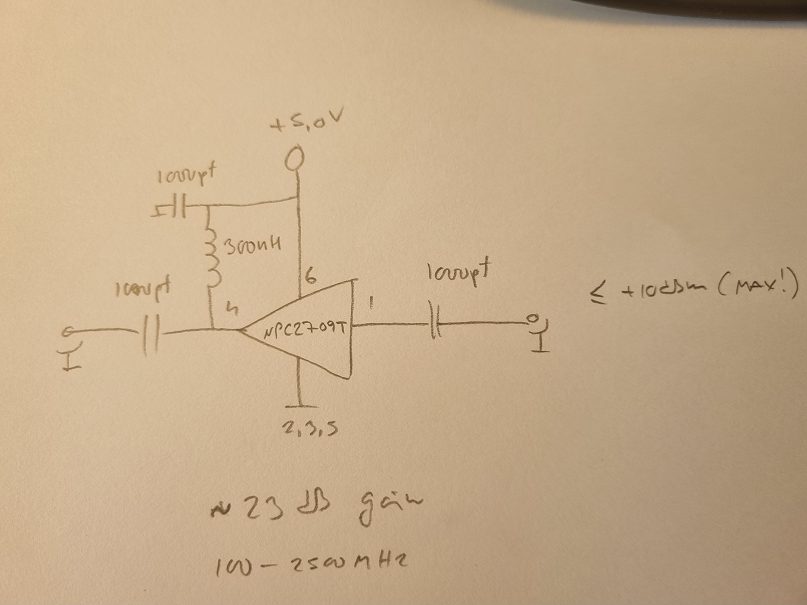 +5,0V
1000pf
300nH
6
1000pf
4
NPC2709T
1
1000pf
≤ +10dBm (MAX!)
2,3,5
~ 23 dB gain
100 - 2500 MHz